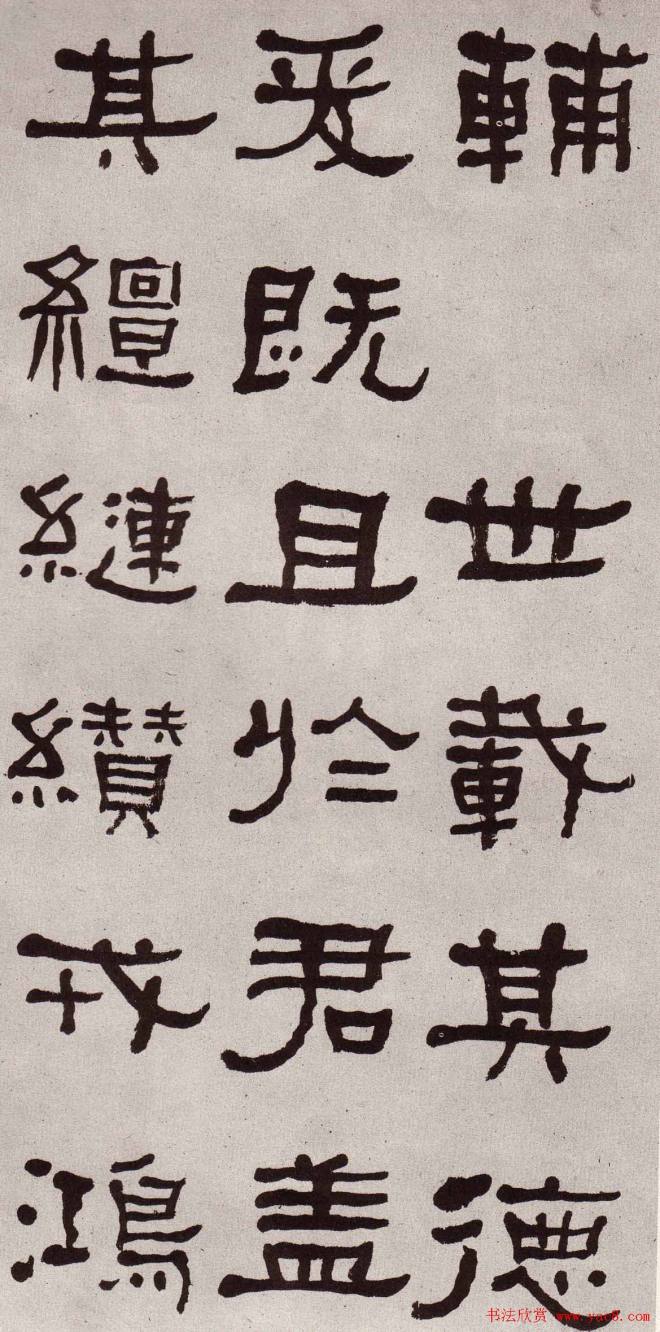 輔 世載其德
爰既且於君盖
其繵縺纘戎鴻
书法欣赏 www.yac8.com